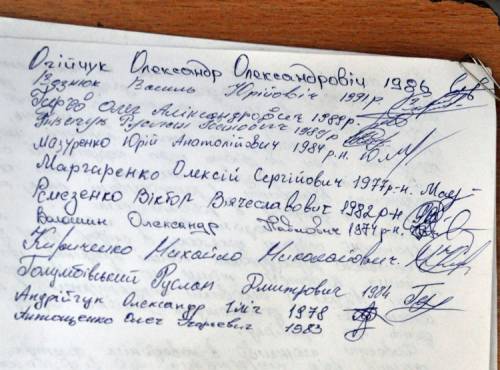 Огійчук Олександр Олександровіч 1986
Вознюк Василь Юрійовіч 1991р
Олег Аліксандровіч 1989р.
Руслан 1989р
Мазуренко Юрій Анатолійович 1984р.н.
Маргаренко Олексій Сергійович 1977р.н.
Ремезенко Віктор Вячеславович 1982р.н
Волошин Олександр Павлович 1974р.н.
Кириченко Михайло Миколайович.
Голумбівський Руслан Дмитрович 1984
Андрійчук Олександр Ілліч 1978
Антощенко Олег Ігорієвич 1983